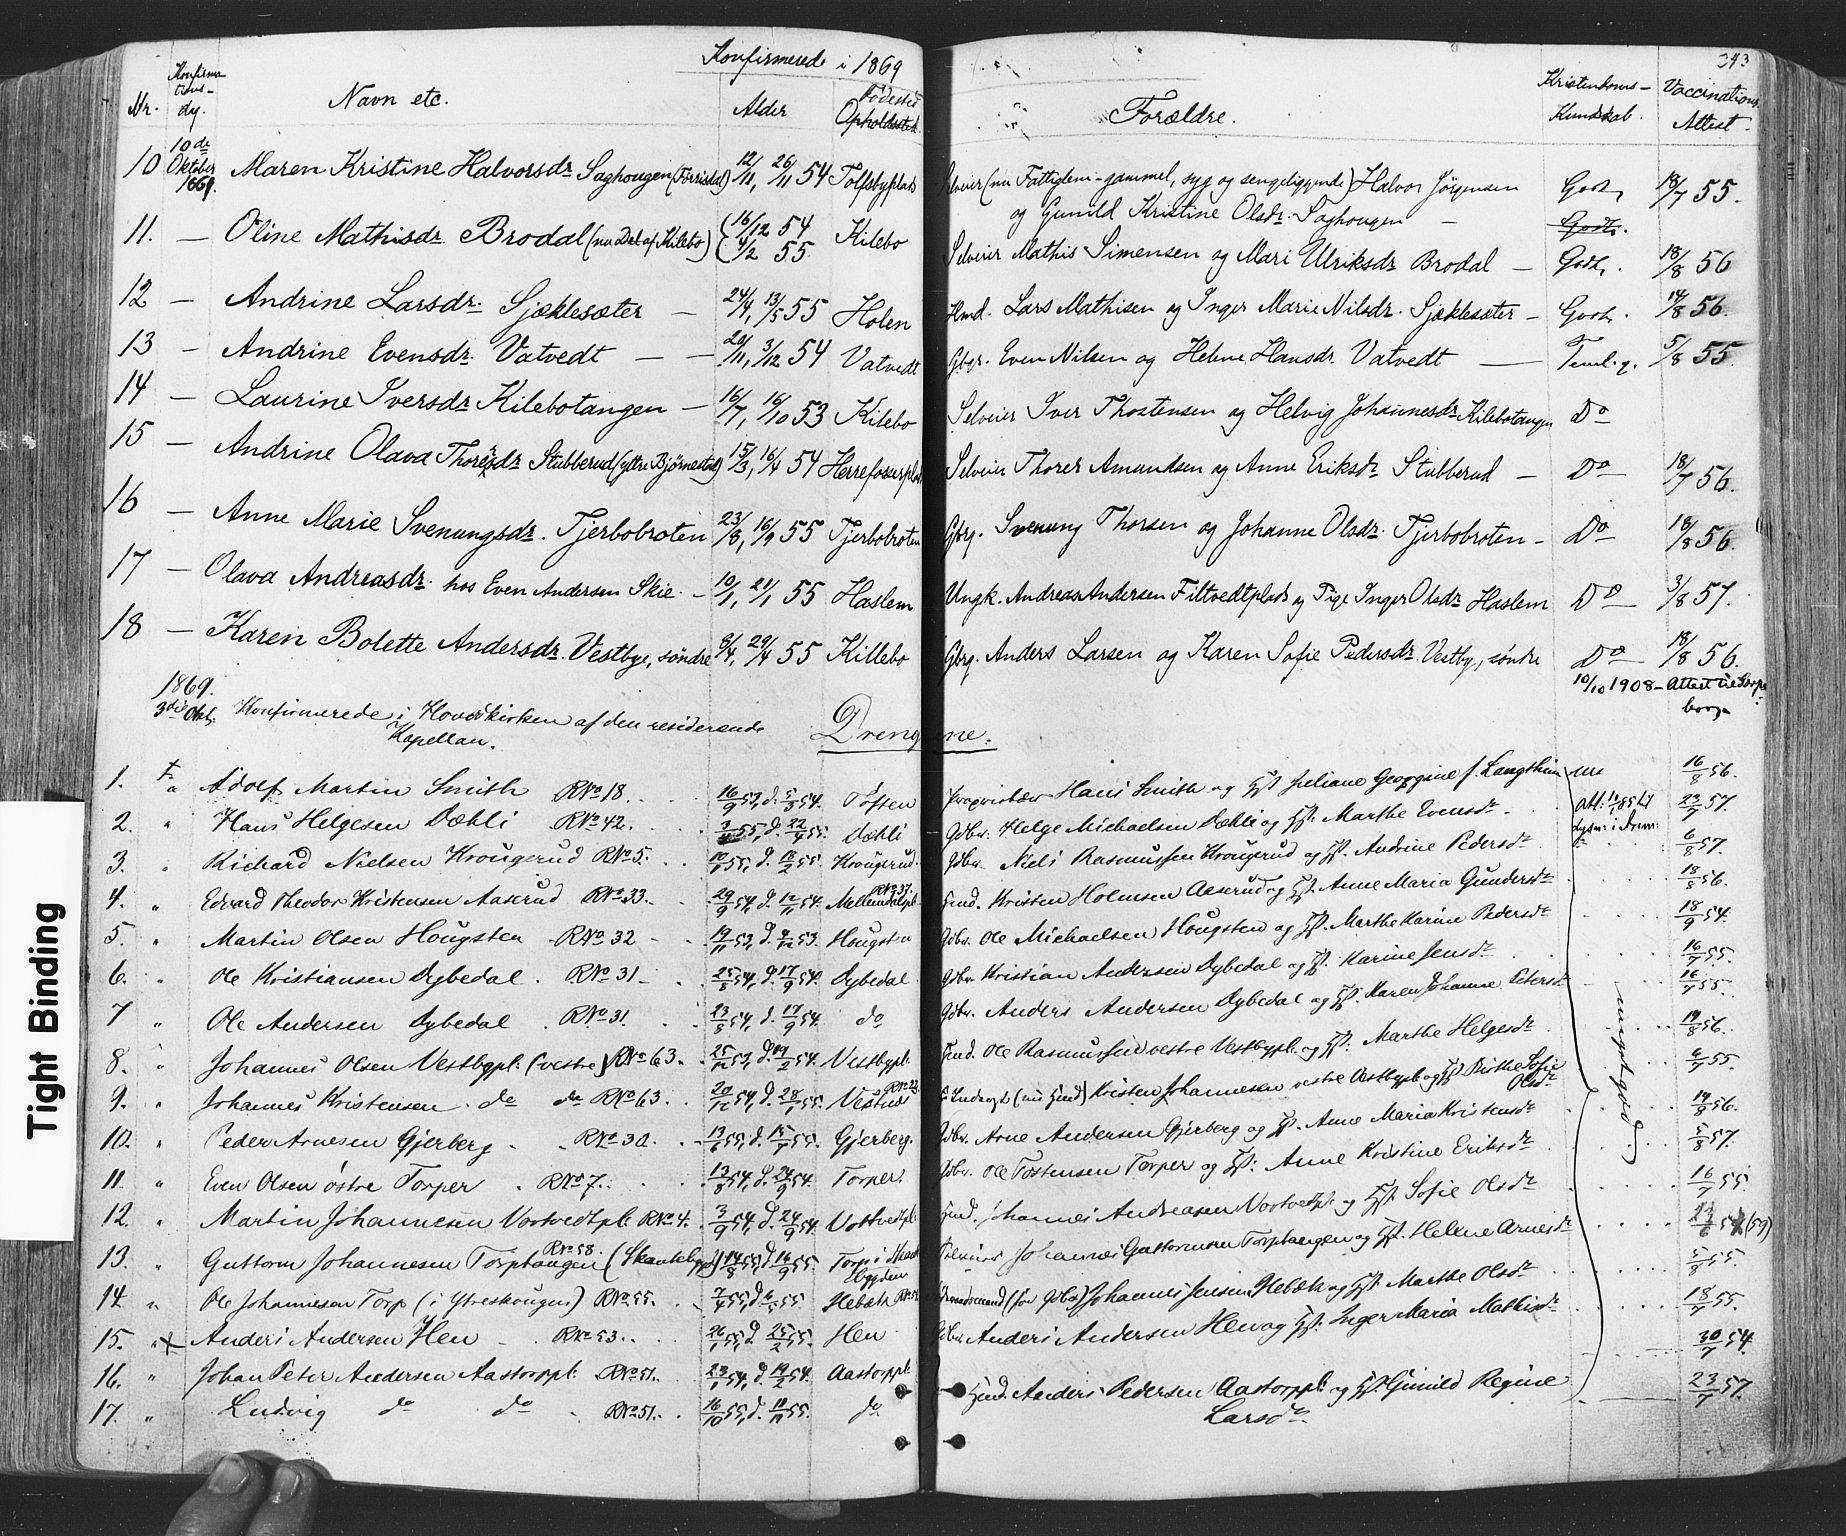 Konfirmerede i 1869
243
Nr. Konfirmations-dg. Navn etc. Alder Fødested Opholdssted Forældre. Kristendoms-Kundskab. Vaccinations Attest.
10 10de Oktober 1869. Maren Kristine Halvorsdr Saghougen 12/11, 26/11 54 Tolfsbyplads Selveier (nu Fattiglem - gammel, syg og sengeliggende) Halvor Jørgensen Godt, 18/7 55.
og Gunild Kristine Olsdr. Saghougen - Godt.
11. — Oline Mathisdr. Brodal (nu Del af Kilebo) 16/12 54 4/2 55 Kilebo Selveier Mathis Simensen og Mari Ulriksdr Brodal — Godt. 18/8 56
12 — Andrine Larsdr. Sjæklesæter — 24/4, 13/5 55 Holen Hmd. Lars Mathisen og Inger Marie Nilsdr. Sjæklesæter — Godt. 14/8 56.
13 — Andrine Evensdr. Vatvedt — — 20/11, 3/12 54 Vatvedt Gbr. Even Nilsen og Helene Hansdr. Vatvedt — Teml. g. 5/8 55.
14 — Laurine Iversdr Kilebotangen — 16/7, 16/10 53 Kilebo Selveier Iver Thostensen og Helvig Johannesdr Kilebotangen Do
15 — Andrine Olava Thorersdr Stubberud (yttre Bjørnestad) 15/3, 16/4 54 Selveier Thorer Amundsen og Anne Eriksdr Stubberud — Do — 18/7 56.
16 — Anne Marie Svenungsdr. Tjerbobroten 23/8, 16/9 55 Tjerbobroten Gbrg. Svenung Thorsen og Johanne Olsdr. Tjerbobroten — Do — 18/8 56.
17 — Olava Andreasdr. hos Even Andersen Skie. — 10/1, 21/1 55 Haslem Ungk. Andreas Andersen Filtvedtplads og Pige Inger Olsdr Haslem Do — 3/8 57.
18 — Karen Bolette Andersdr. Vestbye, søndre 8/4, 29/4 55 Killebo Gbrg. Anders Larsen og Karen Sofie Pedersdr. Vestby, søndre Do — 18/8 56.
10/10 1908 — Attest til Sarpsborg
1869. 3die Okt. Konfirmerede i Hovedkirken af den residerende Kapellan.
Drengene.
1. Adolf Martin Smith RNo 18. 16/9 53, d. 5/3 54. Toften Hans Smith og Juliane Georgine f. 16/8 56.
2. " Hans Helgesen Dæhli RNo 42. 3/4 55, d. 22/4 55. Dæhli Gdbr. Helge Michaelsen Dæhli og Hst. Marthe Evensdr. 23/7 57.
3. " Richard Nielsen Krougerud RNo 5. Krougerud. Gdbr. Niels Rasmussen Krougerud og Hst. Andrine Pedersdr. 6/8 57.
4. " Edvard Theodor Kristensen Aaserud RNo 33. 29/9 54, d. 12/11 54. RNo 37. Hmd. Kristen Holmsen Aaserud og Hst. Anne Maria Gundersdr 18/8 56.
5. " Martin Olsen Hougsten RNo 32 19/11 52, Hougsten Gdbr. Ole Michaelsen Hougsten og Hst. Marthe Karine Pedersdr 18/9 54.
6. " Ole Kristiansen Dybedal. RNo 31 25/8 54, d. 17/9 54. Dybedal Gdbr. Kristian Andersen Dybedal og Hst. Karine Jensdr 16/7 55.
7 " Ole Andersen Dybedal. RNo 31. 23/8 54, d. 17/9 54. do Gdbr. Anders Andersen Dybedal og Hst. Karen Johanne Petersdr 16/7 55.
8. " Johannes Olsen Vestbypl. (vestre) RNo 63. Vestbypl. Hmd. Ole Rasmussen vestre Vestbypl. og Hst. Marthe Helgesdr 19/8 56.
9. " Johannes Kristensen. do do RNo 63. 20/12 54, d. 28/1 55. Vestnes RNo 22 (nu Hmd) Kristen Johannesen vestre Vestbypl. og Hst. Dirthe Sofie Olsdr 6/7 55.
10. " Peder Arnesen Gjerberg. RNo 30. 13/6 55, d. 15/7 55. Gjerberg. Gdbr. Arne Andersen Gjerberg og Hst. Anne Maria Kristensdr 19/8 56.
11 " Even Olsen østre Torper. RNo 7. 13/8 54, d. 24/9 54. Torper. Gdbr. Ole Tostensen Torper og Hst. Anne Kristine Eriksdr 5/8 57.
12. " Martin Johannesen Vostvedtpl. RNo 4. 3/9 54, d. 24/9 54. Vostvedtpl. Hmd. Johannes Andreasen Vostvedtpl. og Hst. Sofie Olsdr 16/7 55.
13. " Guttorm Johannesen Torptangen RNo 58. 14/8 55, d. 16/9 55. Torp i Johannes Guttormsen Torptangen og Hst. Helene Arnesdr
14 " Ole Johannesen Torp (i Ytreskougen) RNo 55. 7/4 55, d. 6/5 55 Hebæk Johannes Jensen Hebæk og Hst. Marthe Olsdr 5/8 55.
15. " Anders Andersen Hen RNo 53. 26/1 55, d. 25/2 55. Hen Gdbr. Anders Andersen Hen og Hst. Inger Maria Mathisdr 18/7 55.
16. " Johan Peter Andersen Aastorppl. RNo 51. 23/1 54, d. 19/2 54. Aastorppl. Hmd. Anders Pedersen Aastorppl. og Hst. Gunild Regine Larsdr. 30/7 54.
17. " Ludvig do do RNo 51. 16/10 55, d. 18/11 55. do 23/7 57.
meget god
Tight Binding